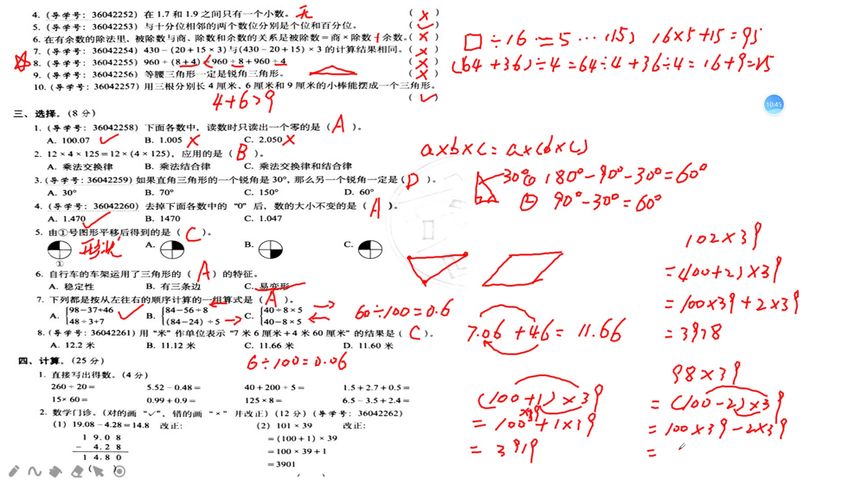 4. (导学号: 36042252) 在 1.7 和 1.9 之间只有一个小数。 无 ( × )
5. (导学号: 36042253) 与十分位相邻的两个数位分别是个位和百分位。 ( × )
6. 在有余数的除法里, 被除数与商、除数和余数的关系是被除数=商×除数+余数。 ( × )
7. (导学号: 36042254) 430-(20+15×3)与(430-20+15)×3 的计算结果相同。 ( × )
8. (导学号: 36042255) 960÷(8+4)<960÷8+960÷4 ( × )
9. (导学号: 36042256) 等腰三角形一定是锐角三角形。 ( × )
10. (导学号: 36042257) 用三根分别长 4 厘米、6 厘米和 9 厘米的小棒能摆成一个三角形。
4+6>9 ( ✓ )
三、选择。(8 分)
1. (导学号: 36042258) 下面各数中, 读数时只读出一个零的是( A )。
A. 100.07 ✓ B. 1.005 × C. 2.050 ×
2. 12×4×125=12×(4×125), 应用的是( B )。
A. 乘法交换律 B. 乘法结合律 C. 乘法交换律和结合律
3. (导学号: 36042259) 如果直角三角形的一个锐角是 30°, 那么另一个锐角一定是( D )。
A. 30° B. 70° C. 150° D. 60°
4. (导学号: 36042260) 去掉下面各数中的 “0” 后, 数的大小不变的是( A )。
A. 1.470 B. 1470 C. 1.047
5. 由①号图形平移后得到的是( C )。
形状 A. B. C.
①
6. 自行车的车架运用了三角形的( A )的特征。
A. 稳定性 B. 有三条边 C. 易变形
7. 下列都是按从左往右的顺序计算的一组算式是( A )。
A. {98-37+46 ✓ B. {84-56÷8 C. {40÷8×5
48÷3+7 (84-24)÷5 40-8×5
60÷100=0.6
8. (导学号: 36042261) 用 “米” 作单位表示 “7 米 6 厘米+4 米 60 厘米” 的结果是( C )。
A. 12.2 米 B. 11.12 米 C. 11.66 米 D. 11.60 米
6÷100=0.06
四、计算。(25 分)
1. 直接写出得数。(4 分)
260÷20= 5.52-0.48= 40+200÷5= 1.5+2.7+0.5=
15×60= 0.99+0.9= 125×8= 6.5-3.5+2.4=
2. 数学门诊。(对的画 “✓”, 错的画 “×” 并改正)(12 分)(导学号: 36042262)
(1) 19.08-4.28=14.8 改正: (2) 101×39 改正:
19.08 =(100+1)×39
- 4.28 =100×39+1
14.80 =3901
( )
□÷16=5…(15) 16×5+15=95
(64+36)÷4=64÷4+36÷4=16+9=25
10:45
a×b×c=a×(b×c)
30° ① 180°-90°-30°=60°
② 90°-30°=60°
7.06+4.6=11.66
(100+1)×39
=100×39+1×39
=3939
102×39
=(100+2)×39
=100×39+2×39
=3978
98×39
=(100-2)×39
=100×39-2×39
=